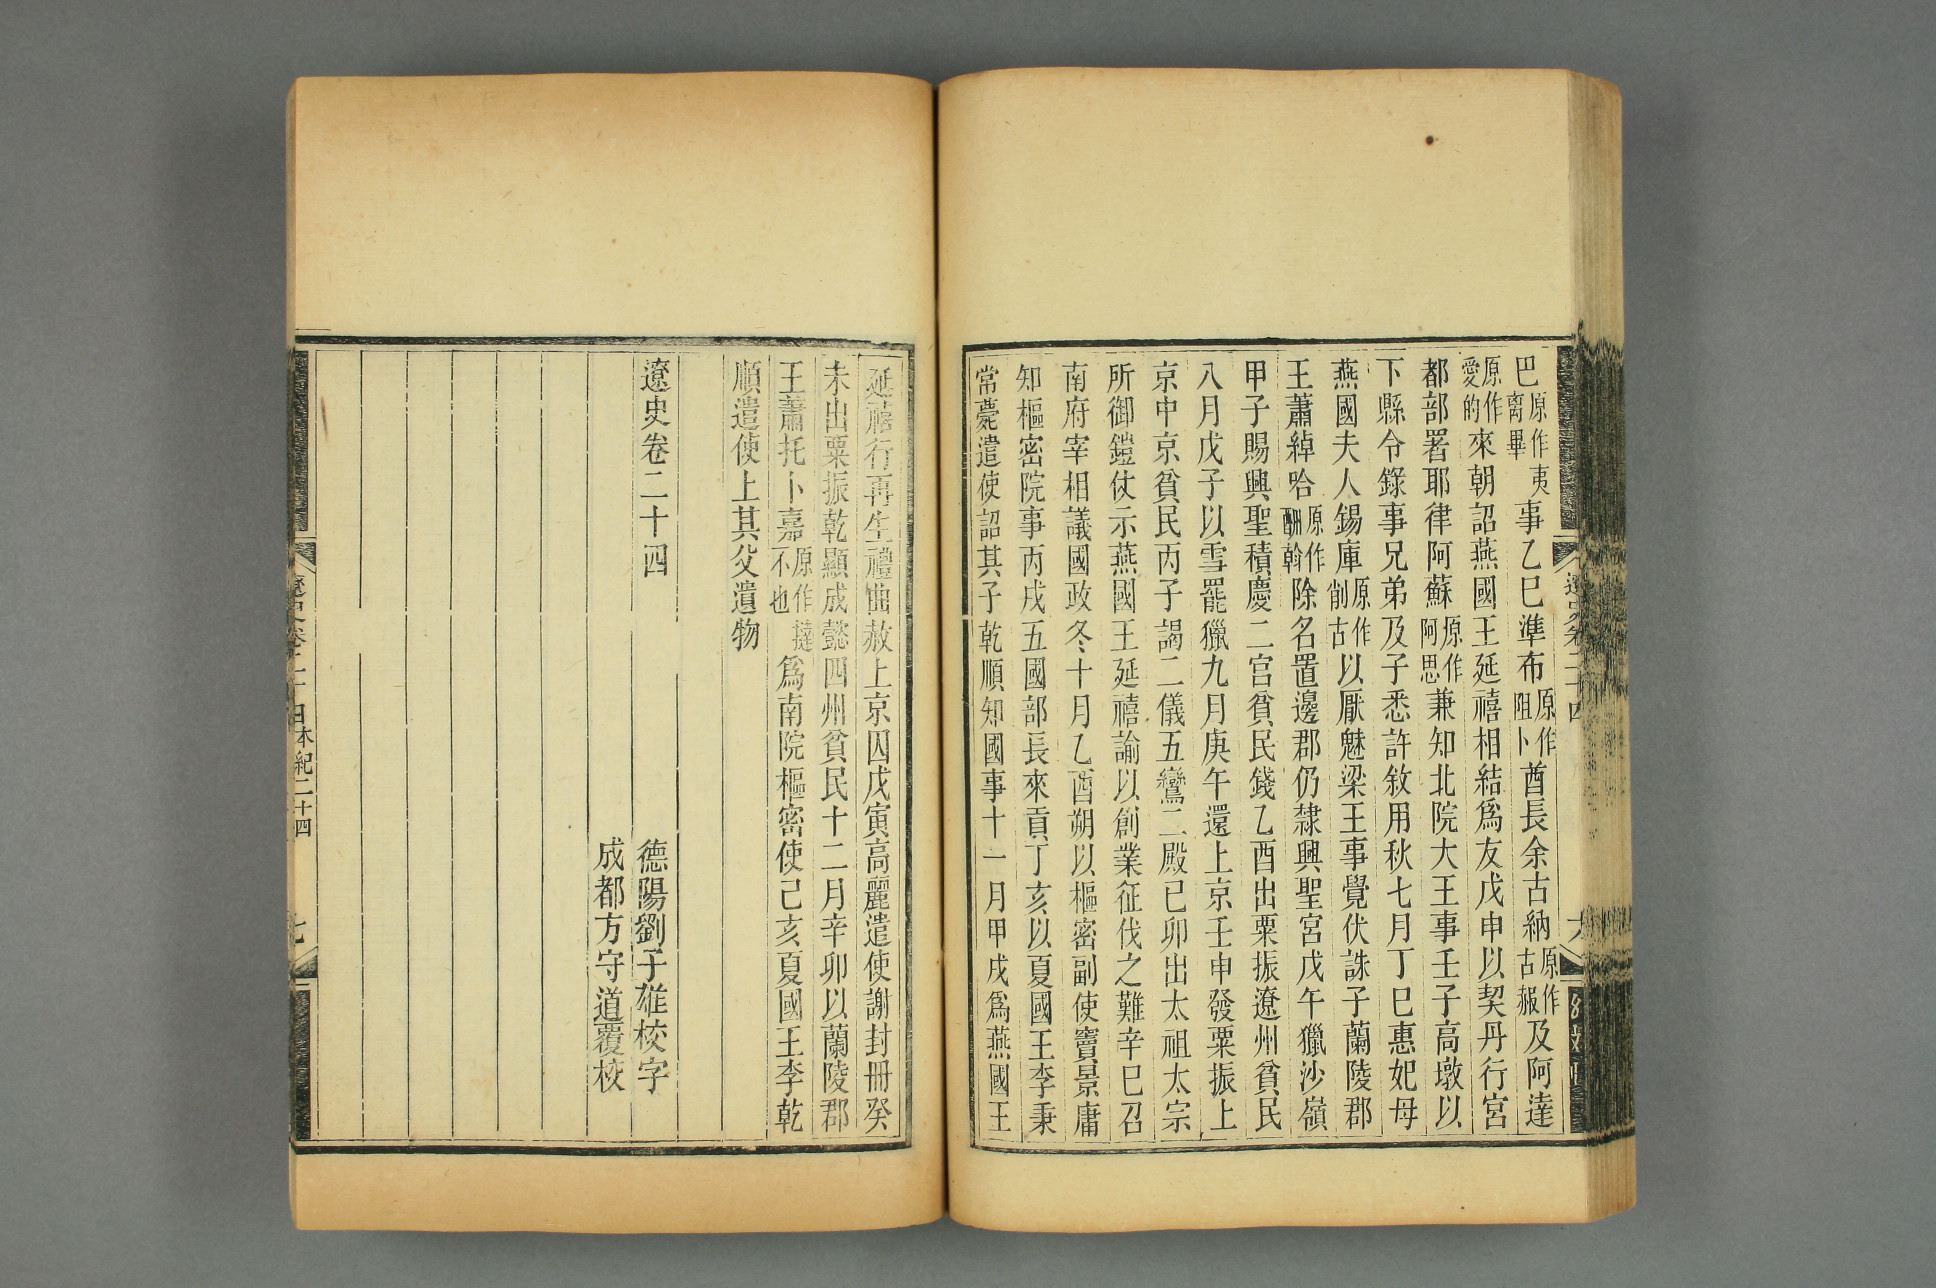 巴原作夷離畢事乙巳準布原作阻卜酋長余古納原作古赧及阿達
原作愛的來朝詔燕國王延禧相結爲友戊申以契丹行宮
都部署耶律阿蘇原作阿思兼知北院大王事壬子高墩以
下縣令錄事兄弟及子悉許敘用秋七月丁巳惠妃母
燕國夫人錫庫原作削古以厭魅梁王事覺伏誅子蘭陵郡
王蕭綽哈原作酬斡除名置邊郡仍隸興聖宮戊午獵沙嶺
甲子賜興聖積慶二宮貧民錢乙酉出粟振遼州貧民
八月戊子以雪罷獵九月庚午還上京壬申發粟振上
京中京貧民丙子謁二儀五鸞二殿己卯出太祖太宗
所御鎧仗示燕國王延禧諭以創業征伐之難辛巳召
南府宰相議國政冬十月乙酉朔以樞密副使竇景庸
知樞密院事丙戌五國部長來貢丁亥以夏國王李秉
常薨遣使詔其子乾順知國事十一月甲戌爲燕國王
延禧行再生禮曲赦上京囚戊寅高麗遣使謝封冊癸
未出粟振乾顯成懿四州貧民十二月辛卯以蘭陵郡
王蕭托卜嘉原作撻不也爲南院樞密使己亥夏國王李乾
順遣使上其父遺物
遼史卷二十四
德陽劉子雄校字
成都方守道覆校
遼史卷二十四
本紀二十四
七